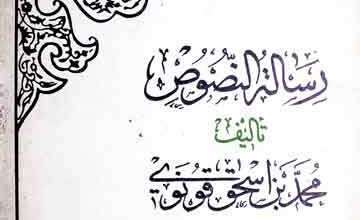 رسالة النصوص
تأليف
محمد بن اسحق قونوي